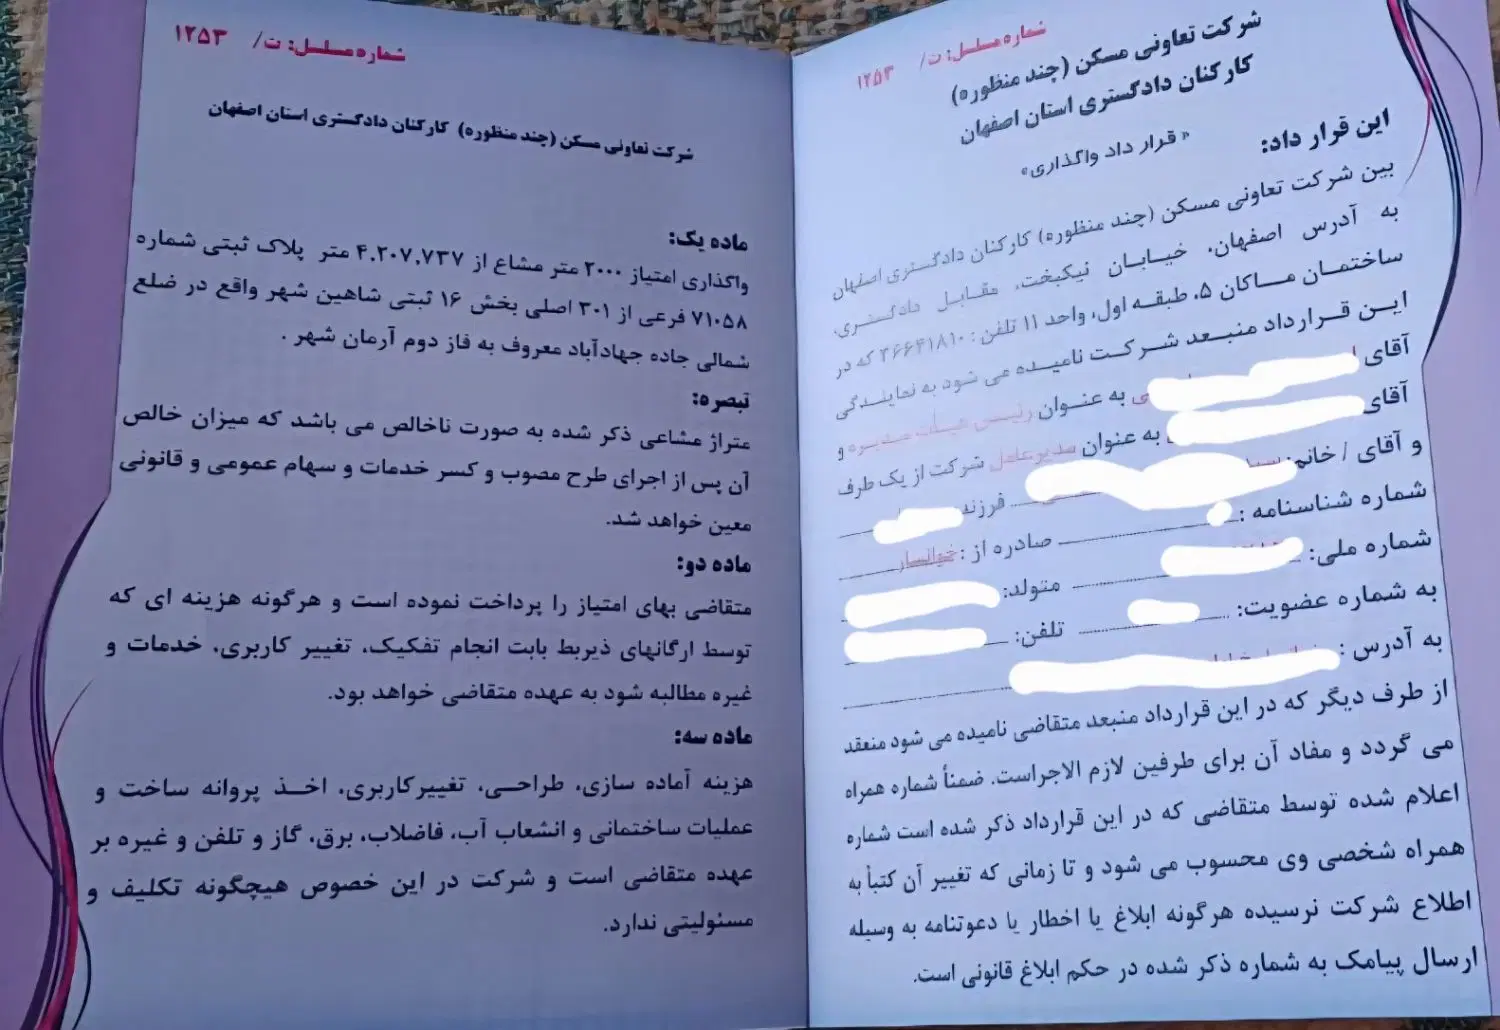 شماره مسلسل: ت/ ۱۲۵۳
شرکت تعاونی مسکن (چند منظوره)
کارکنان دادگستری استان اصفهان
« قرار داد واگذاری»
این قرار داد:
بین شرکت تعاونی مسکن (چند منظوره) کارکنان دادگستری اصفهان
به آدرس اصفهان، خیابان نیکبخت، مقابل دادگستری،
ساختمان ماکان ۵، طبقه اول، واحد ۱۱ تلفن: ۳۶۶۴۱۸۱۰ که در
این قرارداد منبعد شرکت نامیده می شود به نمایندگی
آقای به عنوان رئیس هیأت مدیره و
آقای به عنوان مدیرعامل شرکت از یک طرف
و آقای / خانم: فرزند
شماره شناسنامه : صادره از : خوانسار
شماره ملی: متولد:
به شماره عضویت: تلفن:
به آدرس :
از طرف دیگر که در این قرارداد منبعد متقاضی نامیده می شود منعقد
می گردد و مفاد آن برای طرفین لازم الاجراست. ضمناً شماره همراه
اعلام شده توسط متقاضی که در این قرارداد ذکر شده است شماره
همراه شخصی وی محسوب می شود و تا زمانی که تغییر آن کتباً به
اطلاع شرکت نرسیده هرگونه ابلاغ یا اخطار یا دعوتنامه به وسیله
ارسال پیامک به شماره ذکر شده در حکم ابلاغ قانونی است.
شماره مسلسل: ت/ ۱۲۵۳
شرکت تعاونی مسکن (چند منظوره) کارکنان دادگستری استان اصفهان
ماده یک:
واگذاری امتیاز ۲۰۰۰ متر مشاع از ۴،۲۰۷،۷۳۷ متر پلاک ثبتی شماره
۷۱۰۵۸ فرعی از ۳۰۱ اصلی بخش ۱۶ ثبتی شاهین شهر واقع در ضلع
شمالی جاده جهادآباد معروف به فاز دوم آرمان شهر .
تبصره:
متراژ مشاعی ذکر شده به صورت ناخالص می باشد که میزان خالص
آن پس از اجرای طرح مصوب و کسر خدمات و سهام عمومی و قانونی
معین خواهد شد.
ماده دو:
متقاضی بهای امتیاز را پرداخت نموده است و هرگونه هزینه ای که
توسط ارگانهای ذیربط بابت انجام تفکیک، تغییر کاربری، خدمات و
غیره مطالبه شود به عهده متقاضی خواهد بود.
ماده سه:
هزینه آماده سازی، طراحی، تغییرکاربری، اخذ پروانه ساخت و
عملیات ساختمانی و انشعاب آب، فاضلاب، برق، گاز و تلفن و غیره بر
عهده متقاضی است و شرکت در این خصوص هیچگونه تکلیف و
مسئولیتی ندارد.